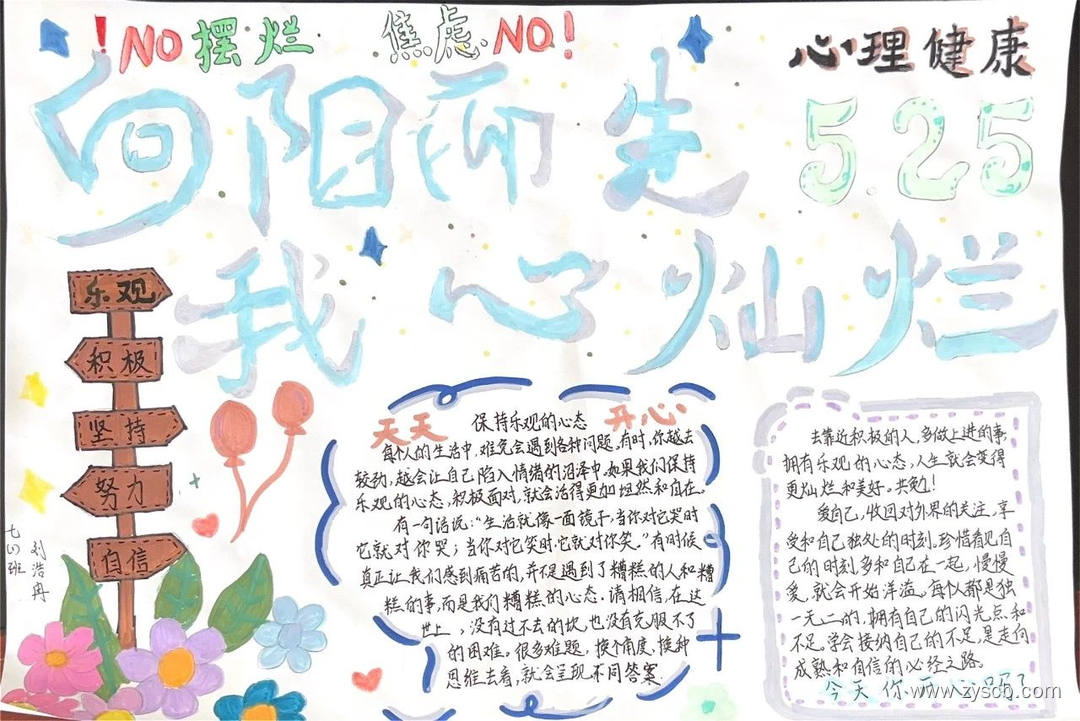 ！NO摆烂 焦虑NO！
心理健康
5.25
向阳而生
我心灿烂
乐观
积极
坚持
努力
自信
七(1)班
刘浩冉
天天 开心
保持乐观的心态
每个人的生活中,难免会遇到各种问题,有时,你越去
较劲,越会让自己陷入情绪的沼泽中,如果我们保持
乐观的心态,积极面对,就会活得更加坦然和自在。
有一句话说:“生活就像一面镜子,当你对它哭时
它就对你哭;当你对它笑时,它就对你笑。”有时候
真正让我们感到痛苦的,并不是遇到了糟糕的人和糟
糕的事,而是我们糟糕的心态,请相信,在这
世上,没有过不去的坎,也没有克服不了
的困难。很多难题,换个角度,换种
思维去看,就会呈现不同答案.
去靠近积极的人,多做上进的事,
拥有乐观的心态,人生就会变得
更灿烂和美好。共勉!
爱自己,收回对外界的关注,享
受和自己独处的时刻。珍惜看见自
己的时刻,多和自己在一起,慢慢
爱,就会开始洋溢。每个人都是独
一无二的,拥有自己的闪光点和
不足。学会接纳自己的不足,是走向
成熟和自信的必经之路。
今天你开心吗?
www.zyscb.com